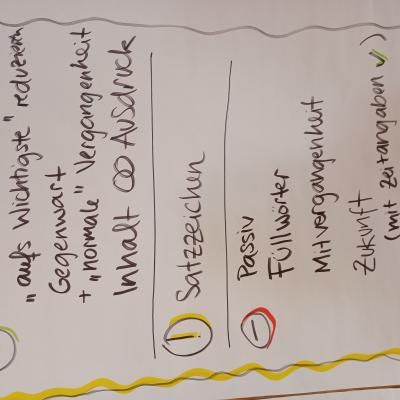 „aufs Wichtigste" reduzieren
Gegenwart
+ „normale" Vergangenheit
Inhalt ∞ Ausdruck
! Satzzeichen
– Passiv
Füllwörter
Mitvergangenheit
Zukunft
(mit Zeitangaben ✓)